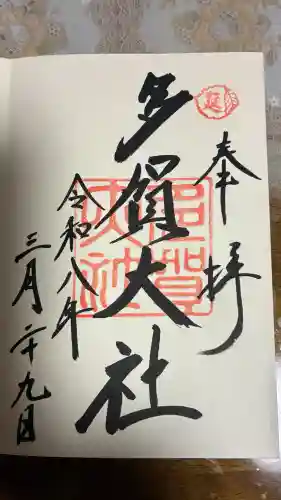 奉拝
延
多賀大社
多賀大社
令和八年
三月二十九日